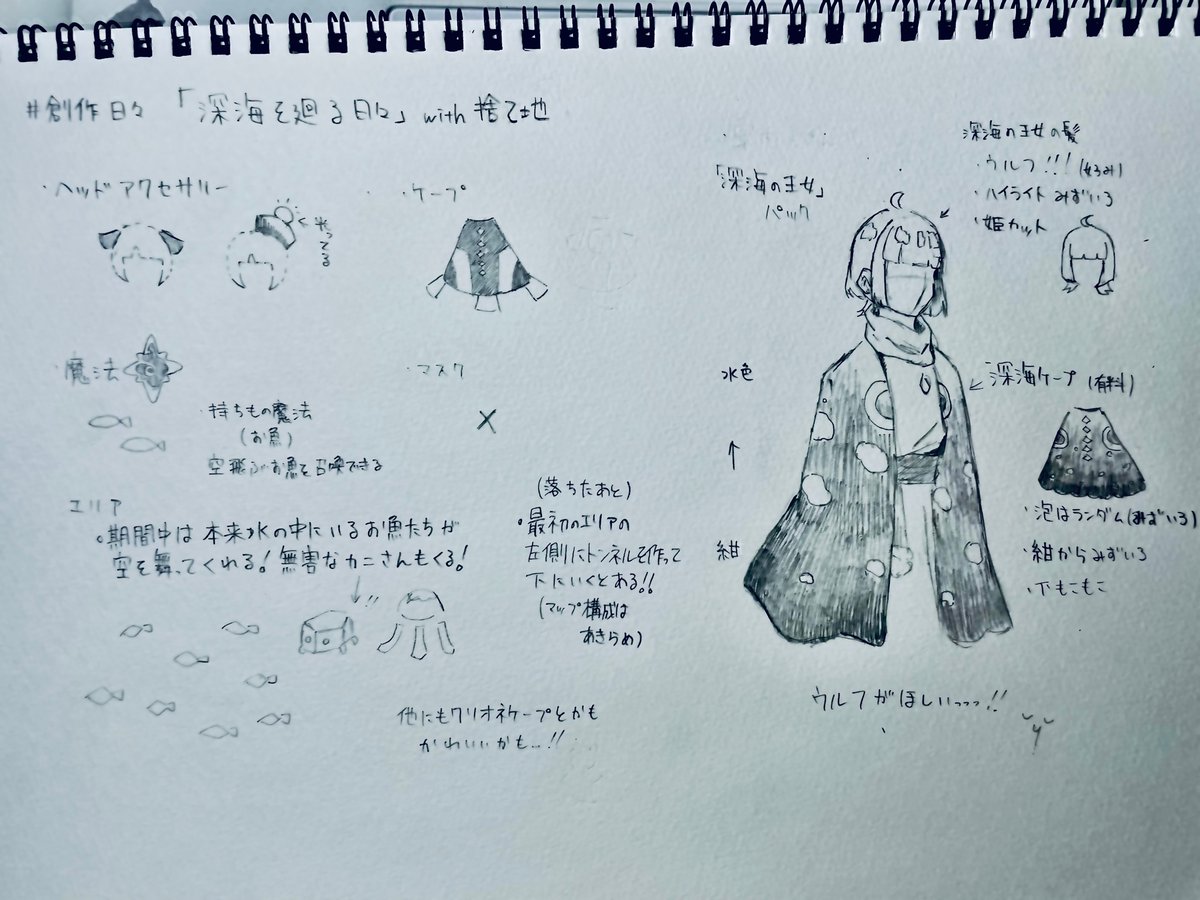 #創作日々 「深海を廻る日々」 with 捨て地
・ヘッドアクセサリー
光ってる
・ケープ
・魔法
・持ちもの魔法
(お魚)
空飛ぶお魚を召喚できる
・マスク
×
エリア
。期間中は本来水の中にいるお魚たちが
空を舞ってくれる!無害なカニさんもくる!
!!
(落ちたあと)
・最初のエリアの
左側にトンネルを作って
下にいくとある!!
(マップ構成は
あきらめ)
他にもクリオネケープとかも
かわいいかも…!!
「深海の王女」
パック
深海の王女の髪
・ウルフ!!!(好み)
・ハイライト みずいろ
・姫カット
水色
↑
紺
深海ケープ(有料)
・泡はランダム(みずいろ)
・紺からみずいろ
・下もこもこ
ウルフがほしいっっっ!!